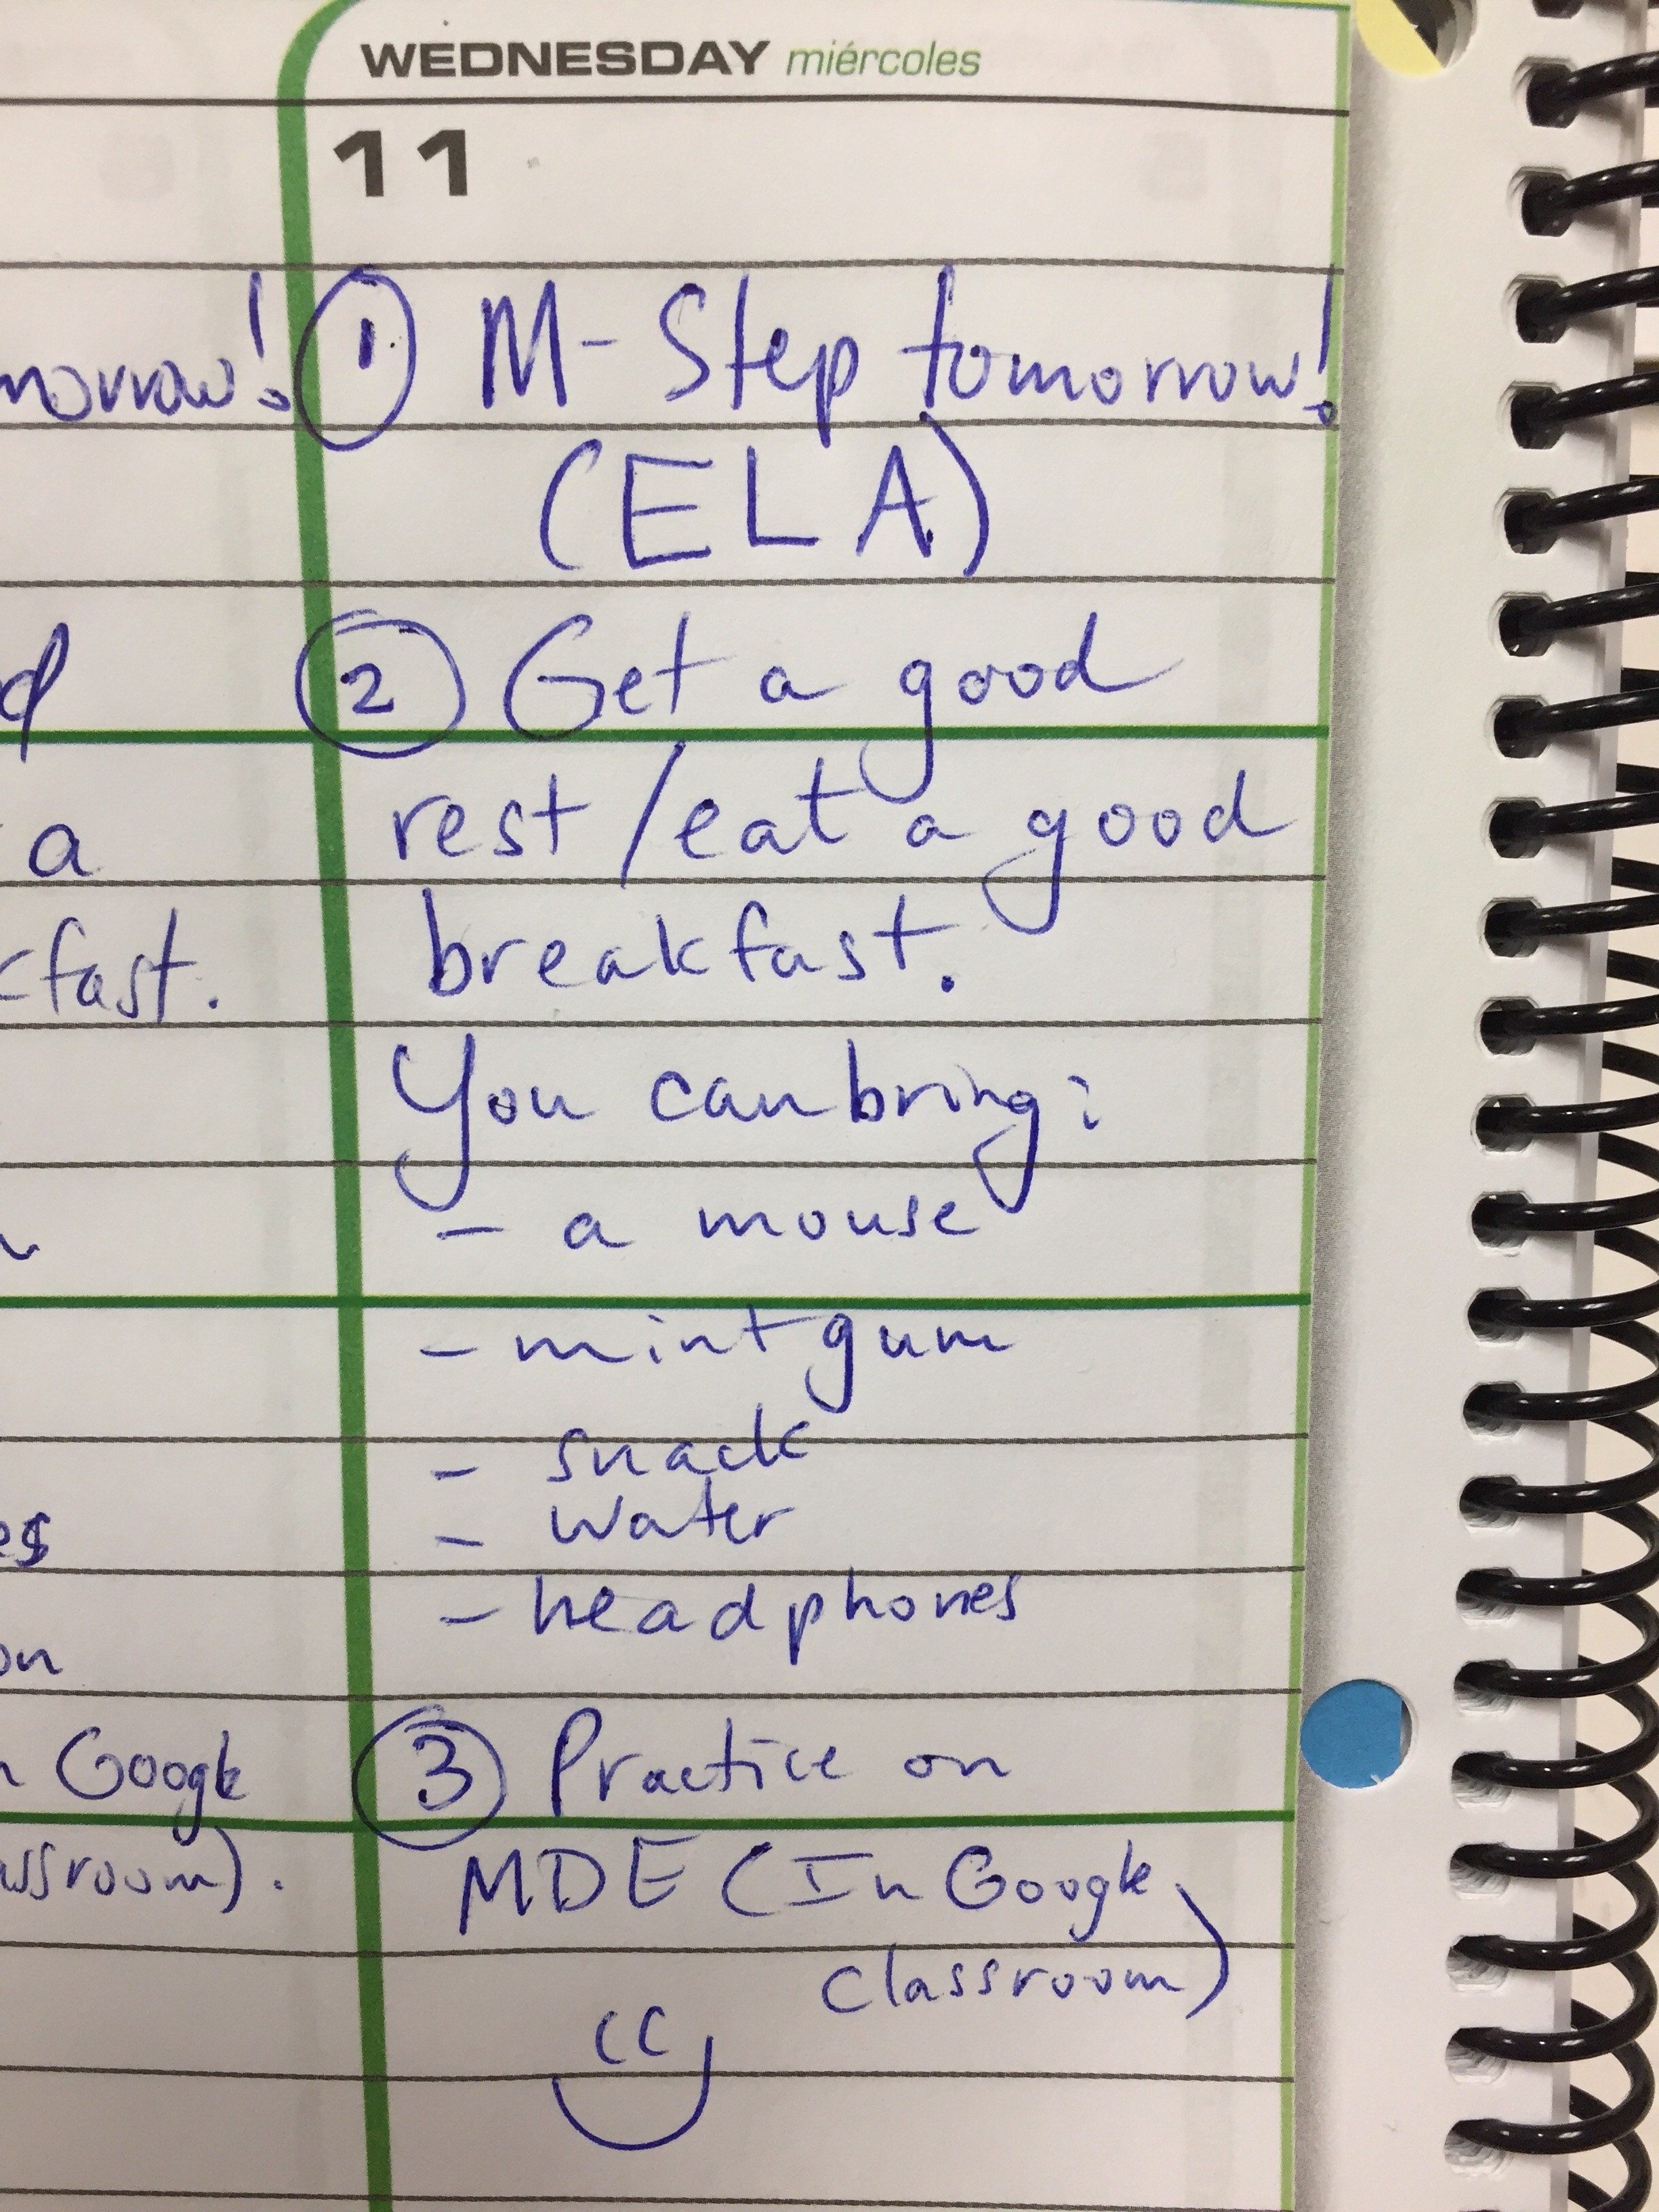 WEDNESDAY miércoles
11
① M-Step tomorrow!
(ELA)
② Get a good
rest/eat a good
breakfast.
You can bring:
- a mouse
- mint gum
- snack
- water
- headphones
③ Practice on
MDE (In Google
classroom)
a
fast.
Google